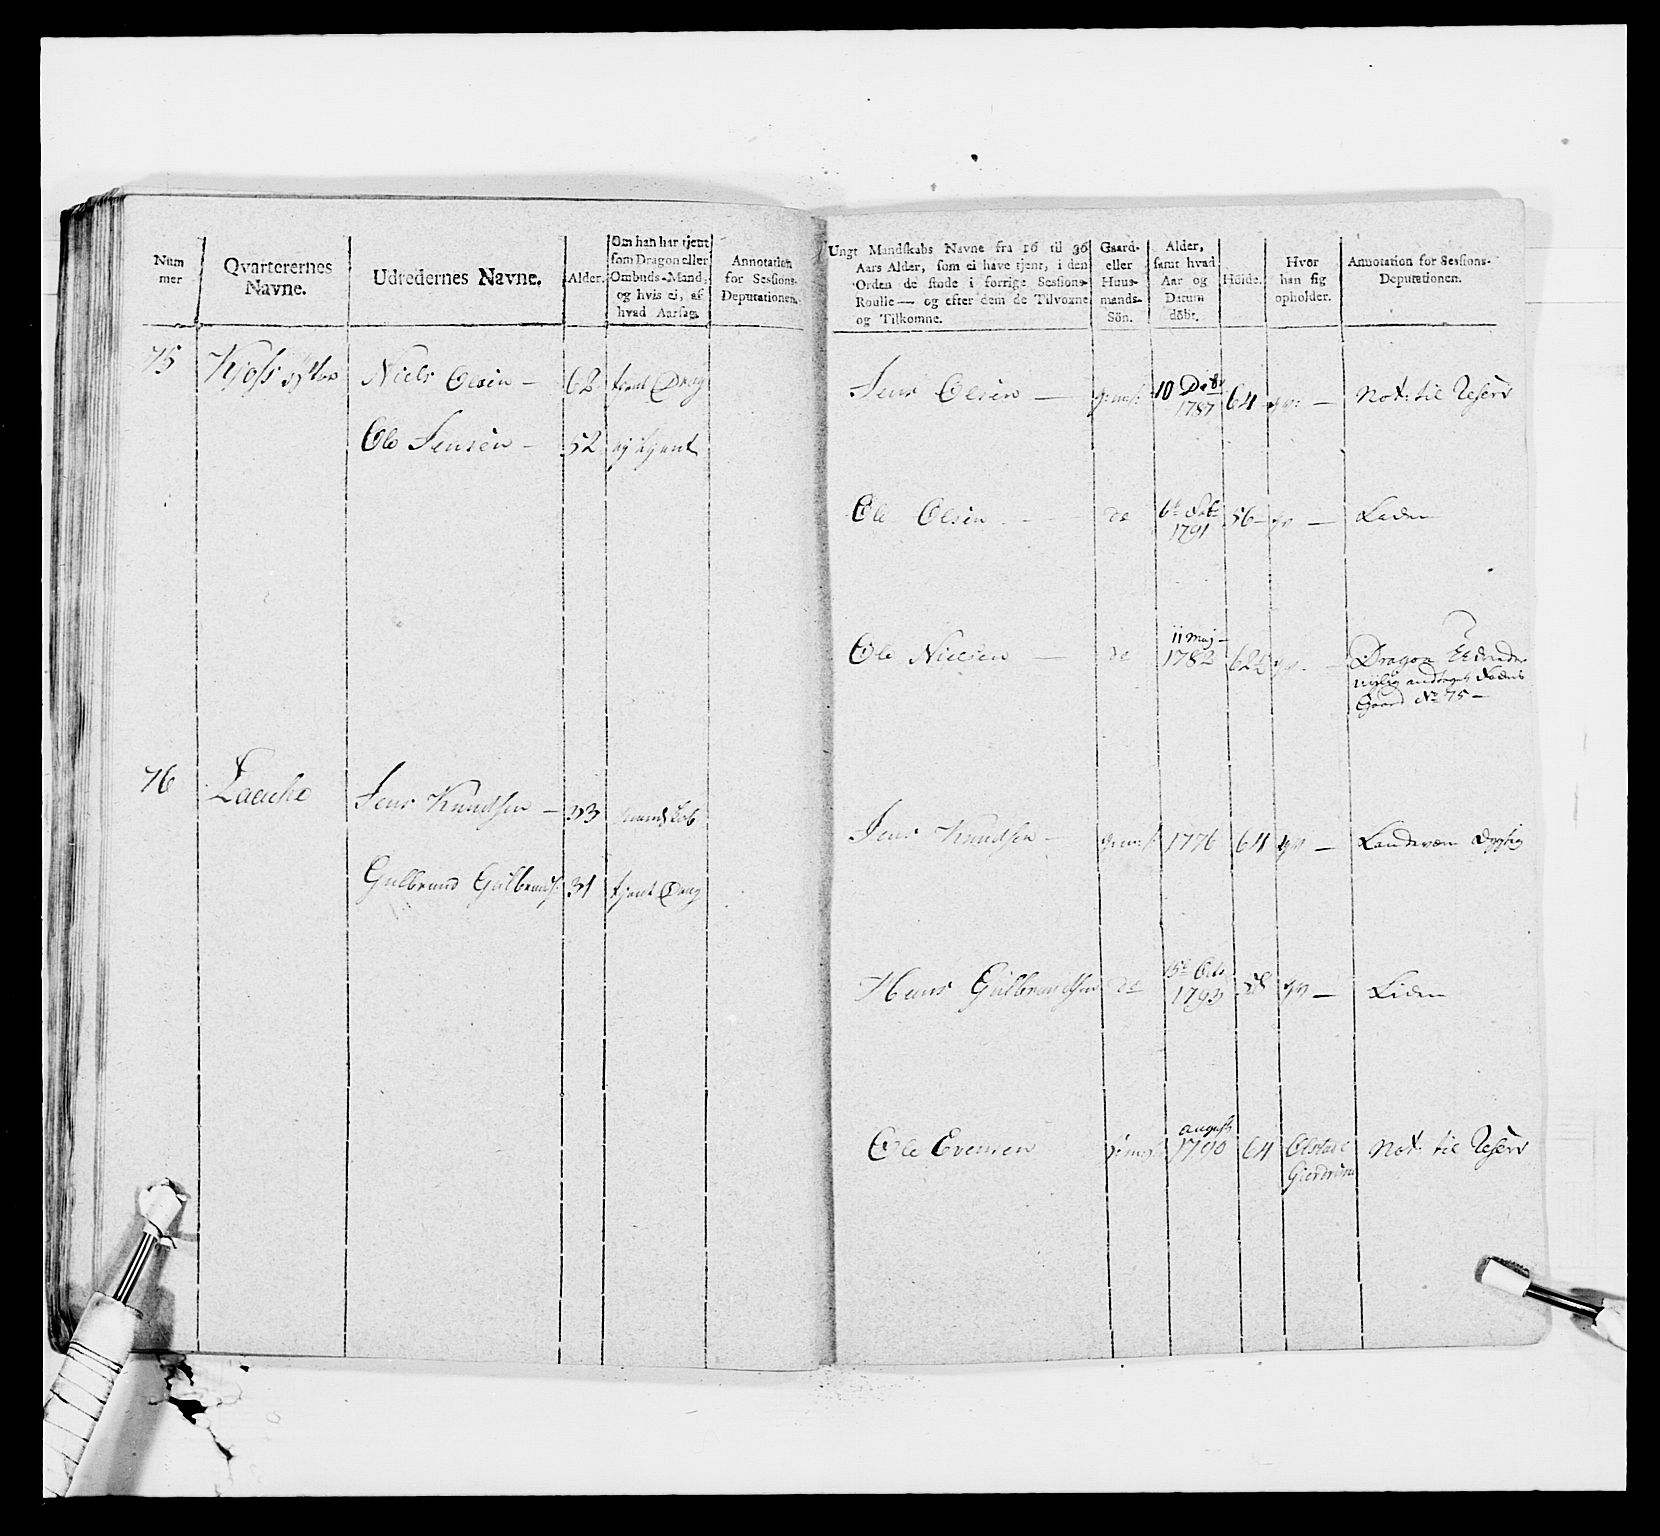 Num
mer
Qvarterernes
Navne.
Udredernes Navne.
Alder.
Om han har tjent
som Dragon eller
Ombuds-Mand,
og hvis ei, af
hvad Aarsag.
Annotation
for Sessions-
Deputationen.
75
Niels Olsen —
62
tient Drag
Ole Jensen —
52
ej tjent
76
Jens Knudsen —
33
Gulbrand Gulbrands:
31
tjent Drag
Ungt Mandskabs Navne fra 16 til 36
Aars Alder, som ei have tjent, i den
Orden de stode i forrige Sessions-
Roulle — og efter dem de Tilvoxne
og Tilkomne.
Gaard-
eller
Huus-
mands-
Sön.
Alder,
samt hvad
Aar og
Datum
döbt.
Höide.
Hvor
han sig
opholder.
Annotation for Sessions-
Deputationen.
Jens Olsen —
10 Decbr
1787
64
Not: til Reserv
Ole Olsen
de
1791
56
Liden
Ole Nielsen —
de
11 Maj —
1782
62
Dragon
Gaard No 75 —
Jens Knudsen —
1776
64
Landeværn dygtig
Hans Gulbrandsen
de
15de Octr
1793
58
Liden
Ole Evensen
august
1790
64
Olstad
Gierdrum
Not: til Reserv